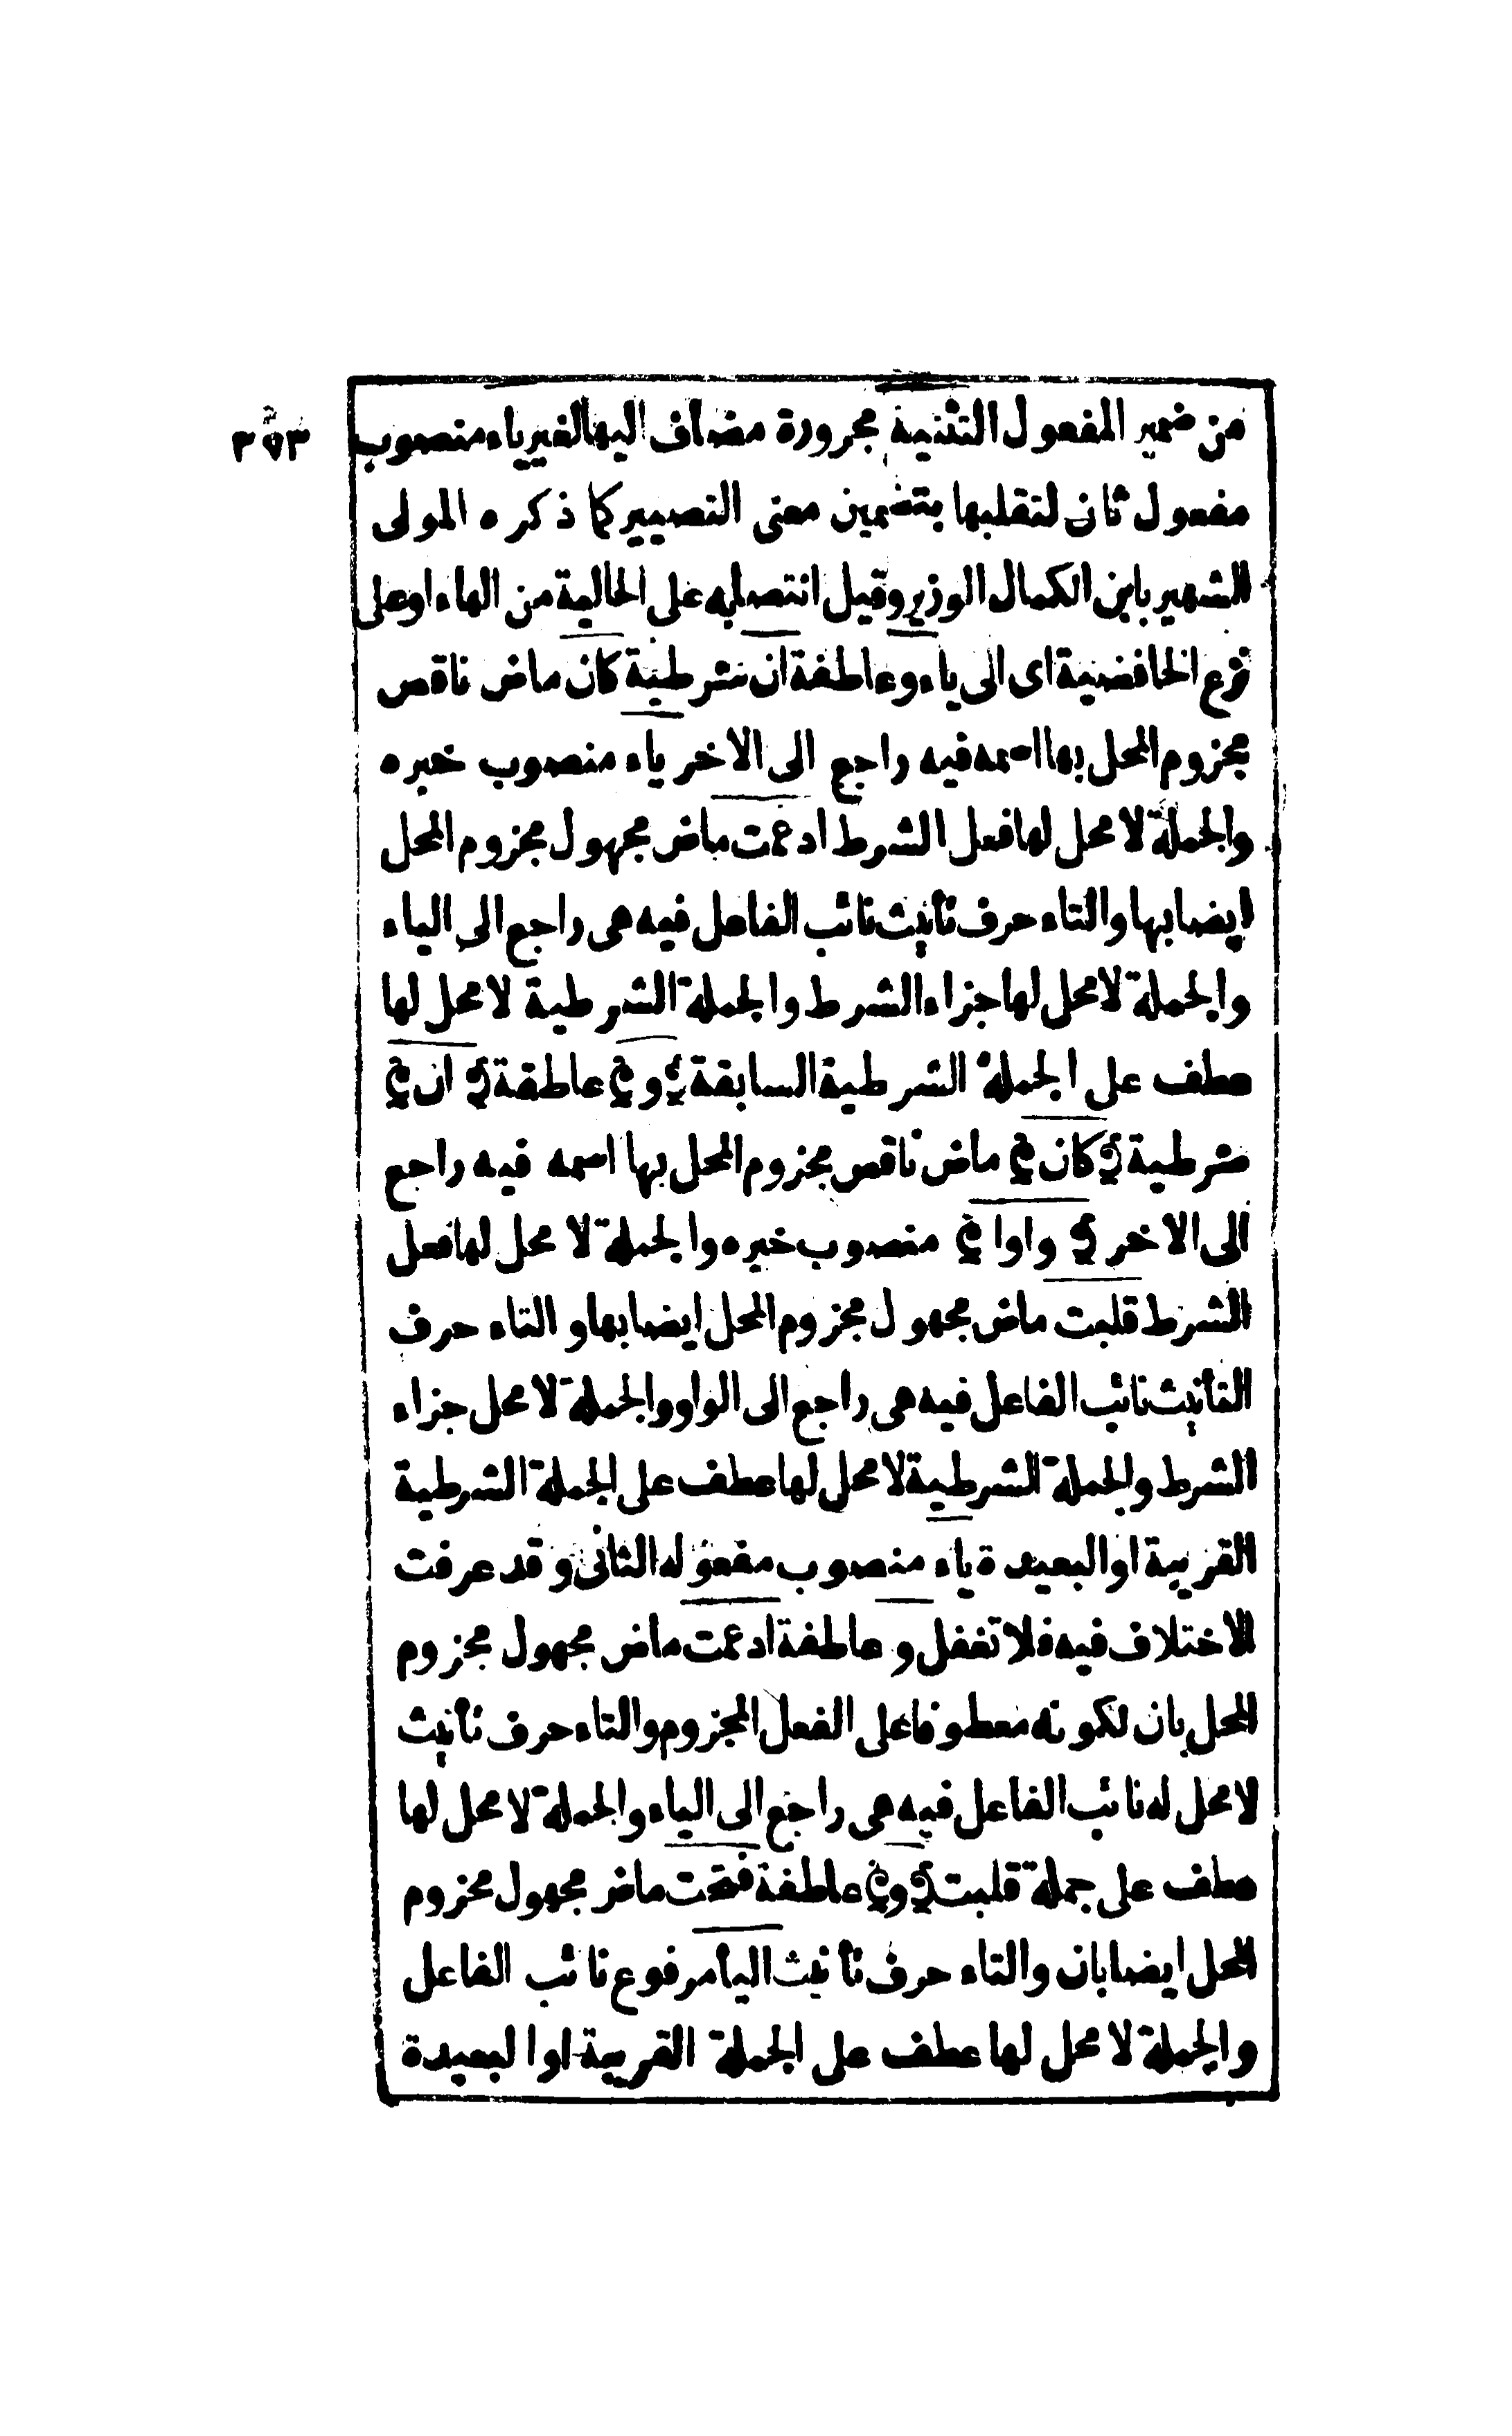 ٣٥٣
من ضمير المفعول التثنية مجرورة مضاف اليها لغير ياء منصوب
مفعول ثان لتقلبها بتضمين معنى التصيير كما ذكره المولى
الشهير بابن الكمال الوزير وقيل انتصابه على الحالية من الهاء او على
نزع الخافضية اى الى ياء و عاطفة ان شرطية كان ماض ناقص
مجزوم المحل بها اسمه فيه راجع الى الاخر ياء منصوب خبره
والجملة لا محل لها فعل الشرط ادغمت ماض مجهول مجزوم المحل
ايضا بها والتاء حرف تأنيث نائب الفاعل فيه هى راجع الى الياء
والجملة لا محل لها جزاء الشرط والجملة الشرطية لا محل لها
عطف على الجملة الشرطية السابقة ﴿ و ﴾ عاطفة ﴿ ان ﴾
شرطية ﴿ كان ﴾ ماض ناقص مجزوم المحل بها اسمه فيه راجع
الى الاخر ﴿ واوا ﴾ منصوب خبره والجملة لا محل لها فعل
الشرط قلبت ماض مجهول مجزوم المحل ايضا بها و التاء حرف
التأنيث نائب الفاعل فيه هى راجع الى الواو والجملة لا محل جزاء
الشرط والجملة الشرطية لا محل لها عطف على الجملة الشرطية
القريبة او البعيدة ياء منصوب مفعوله الثانى و قد عرفت
الاختلاف فيه فلا تغفل و عاطفة ادغمت ماض مجهول مجزوم
المحل بان لكونه معطوفا على الفعل المجزوم والتاء حرف تأنيث
لا محل له نائب الفاعل فيه هى راجع الى الياء والجملة لا محل لها
عطف على جملة قلبت ﴿ و ﴾ عاطفة فتحت ماض مجهول مجزوم
المحل ايضا بان والتاء حرف تأنيث اليأ مرفوع نائب الفاعل
والجملة لا محل لها عطف على الجملة القريبة او البعيدة